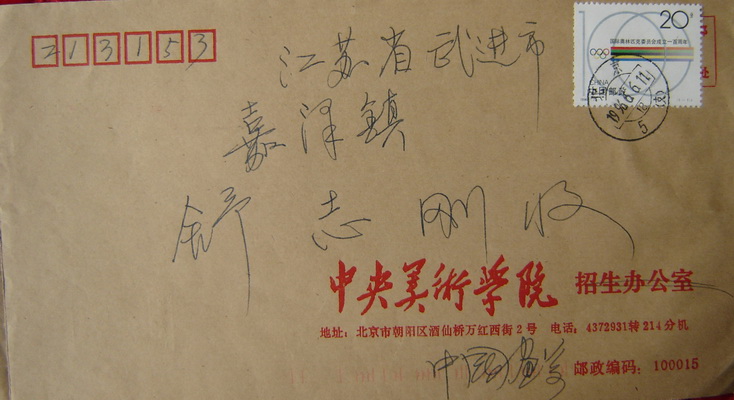 213153
江苏省武进市
嘉泽镇
舒志刚收
20分
国际奥林匹克委员会成立一百周年
CHINA
中国邮政
北京
1996.6.6.11
5
中央美術学院 招生办公室
地址：北京市朝阳区酒仙桥万红西街2号 电话：4372931转214分机
中国画系
邮政编码：100015